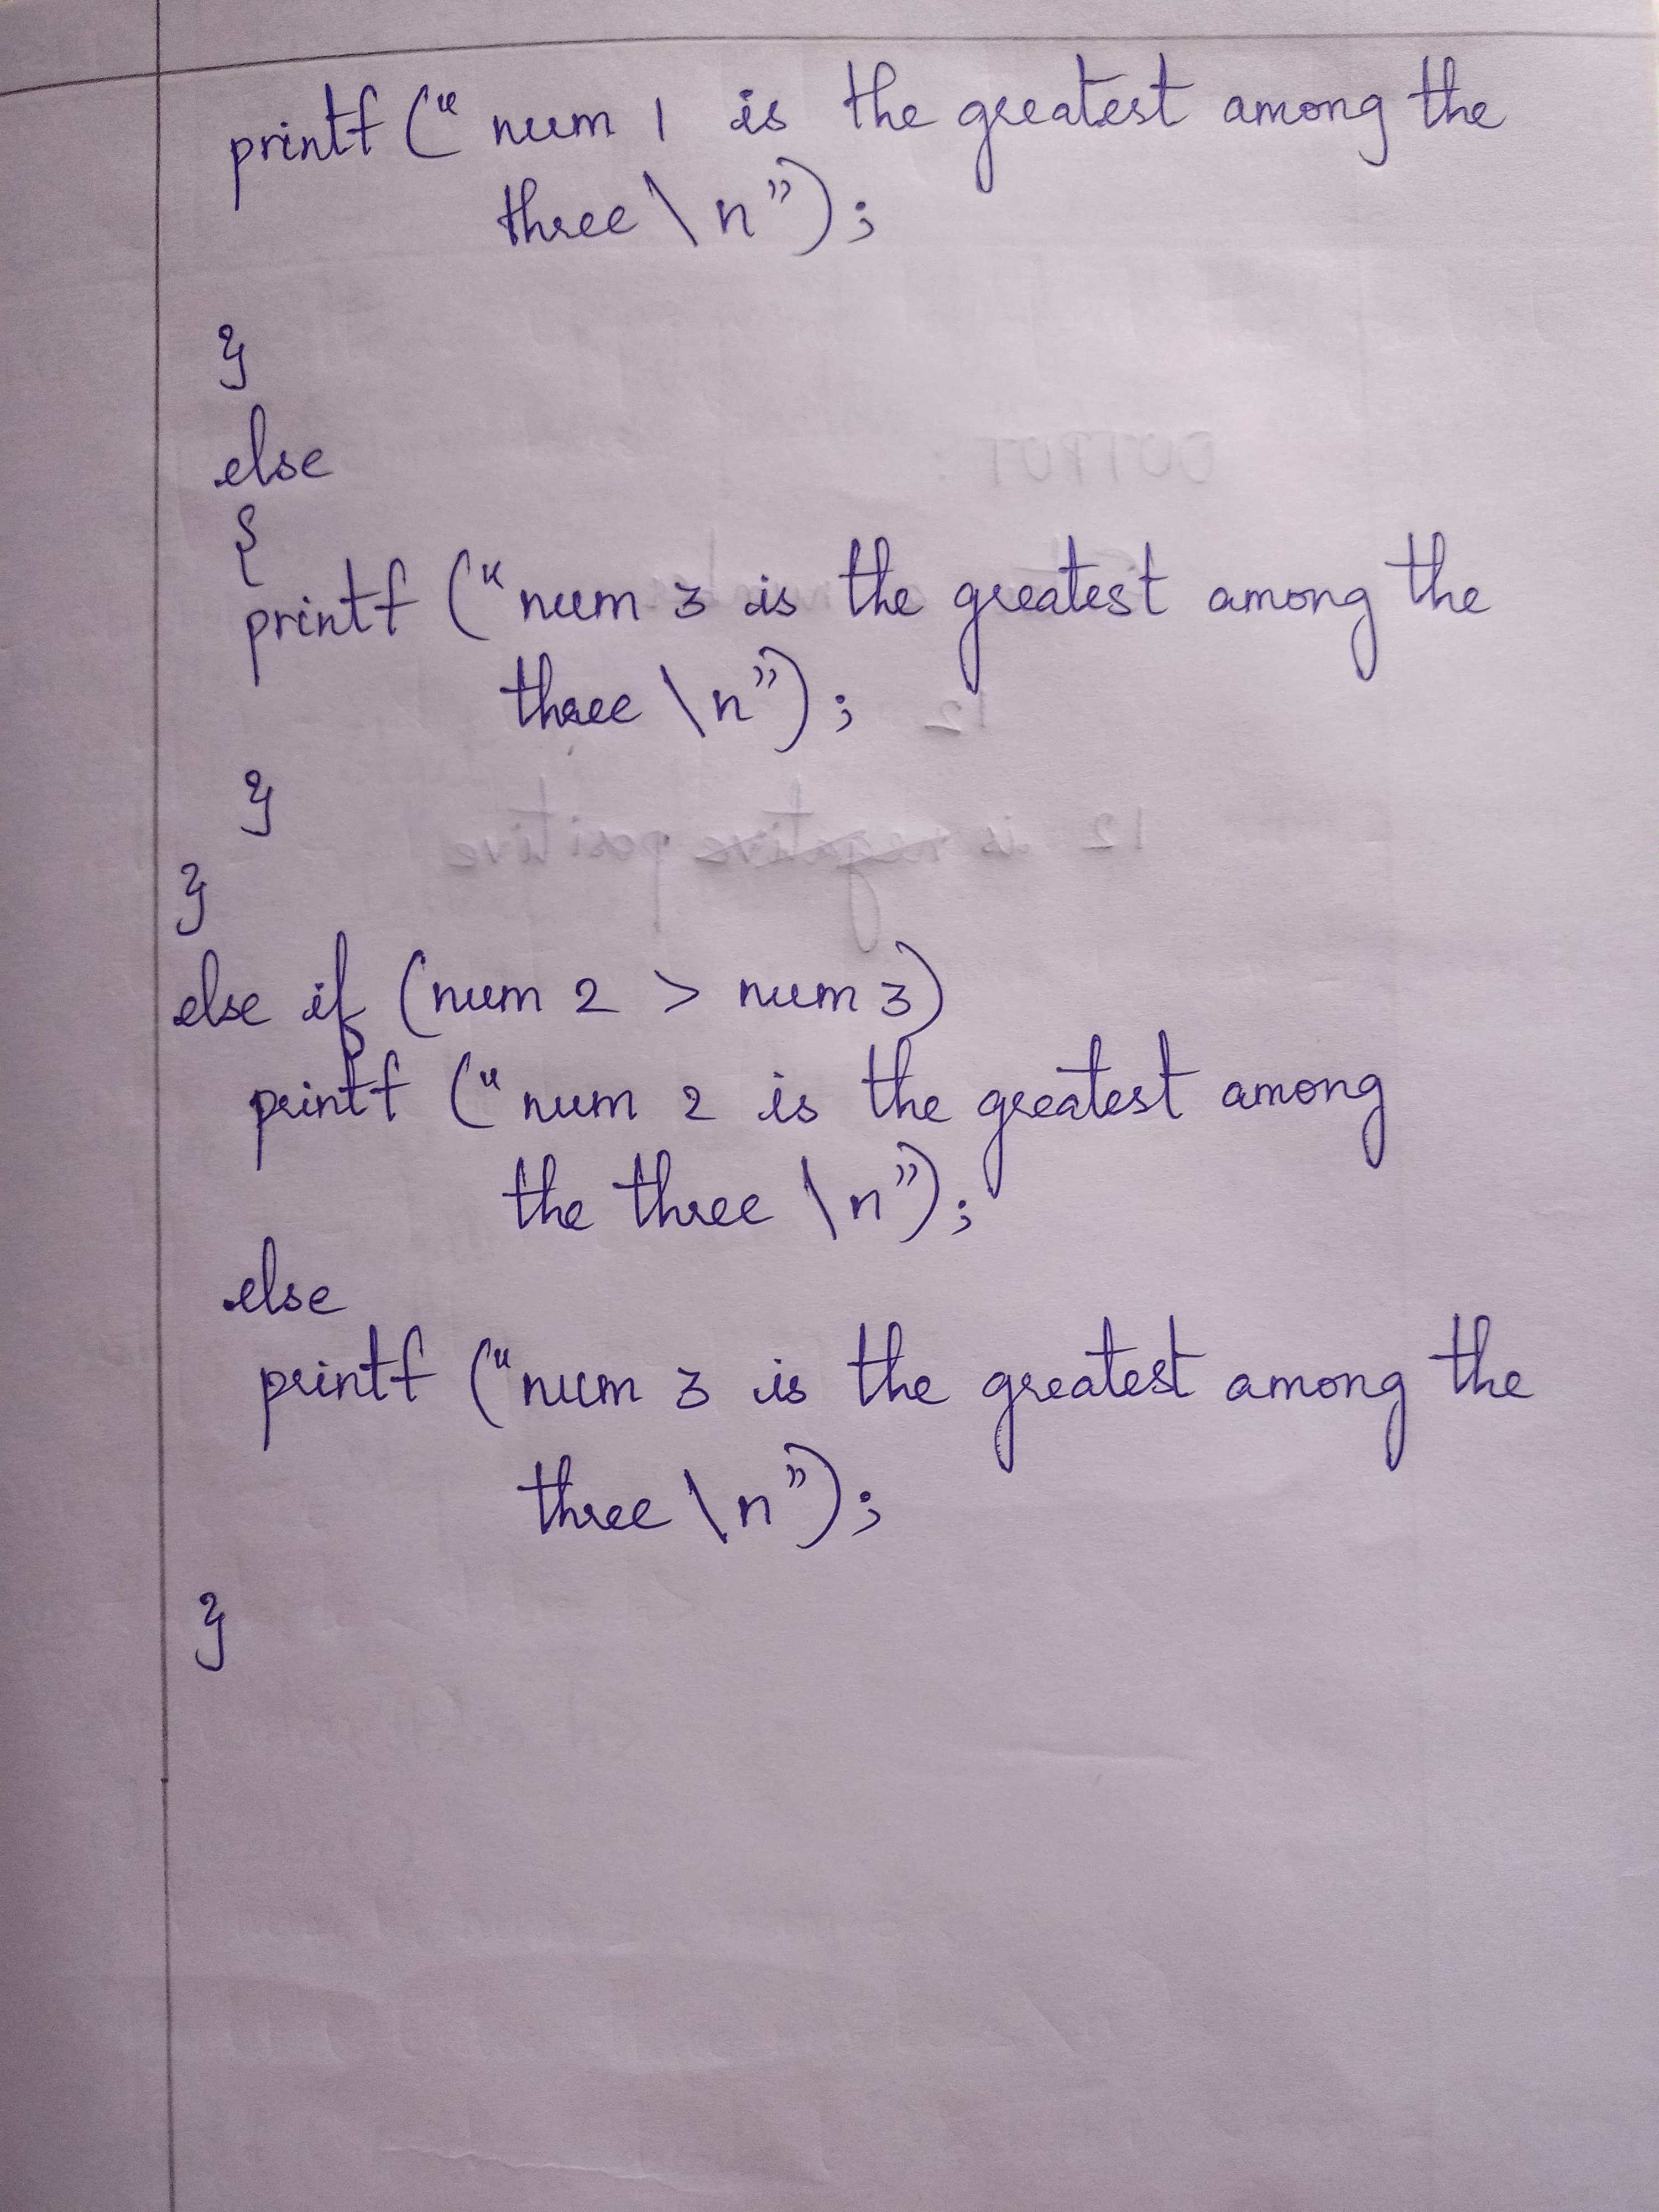 printf (" num 1 is the greatest among the
three \n");
}
else
{
printf ("num 3 is the greatest among the
three \n");
}
}
else if (num 2 > num 3)
printf ("num 2 is the greatest among
the three \n");
else
printf ("num 3 is the greatest among the
three \n");
}